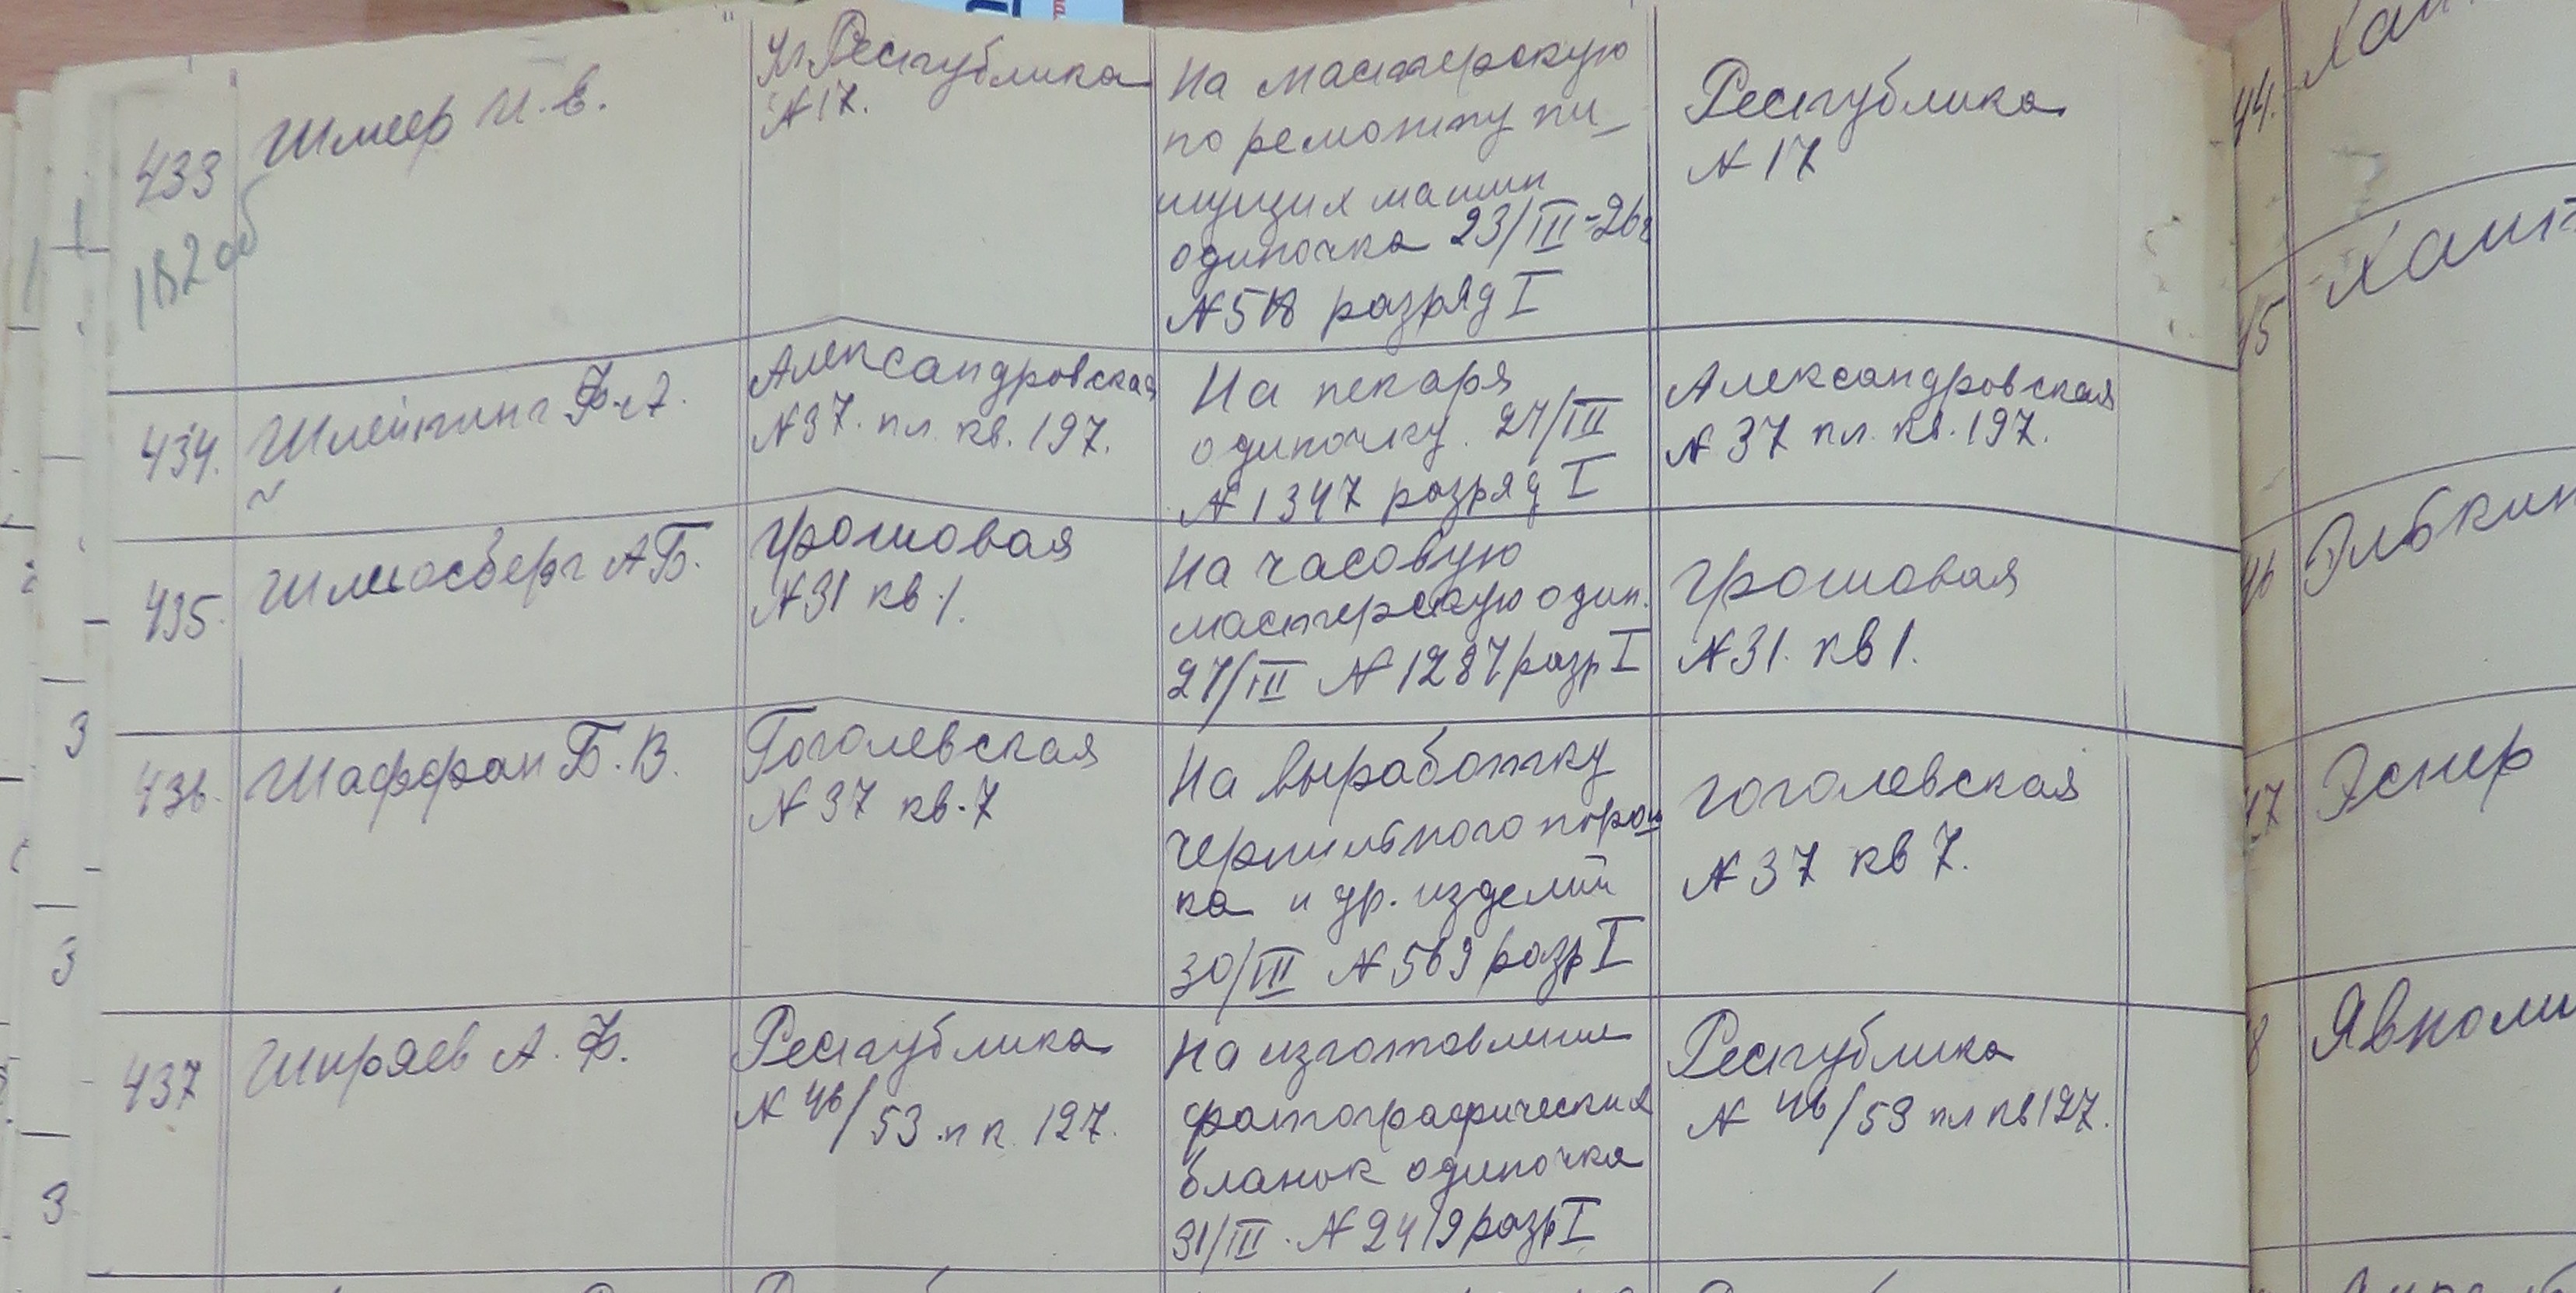 433
182 об
Шмеер И. В.
Ул. Республика
№ 17.
На мастерскую
по ремонту пи-
шущих машин
одиночка 23/III-26г
№ 518 разряд I
Республика
№ 17
434.
Шлейтинг Ф. А.
Александровская
№ 37. пл. кв. 197.
На пекаря
одиночку. 27/III
№ 1347 разряд I
Александровская
№ 37 пл. кв. 197.
435.
Шлиосберг А Б.
Грошовая
№ 31 кв 1.
На часовую
мастерскую один.
27/III № 1287 разр I
Грошовая
№ 31. кв 1.
436.
Шаффран Б. В.
Гоголевская
№ 37 кв. 7
На выработку
чернильного порош
ка и др. изделий
30/III № 569 разр I
гоголевская
№ 37 кв 7.
437
Ширяев А. Ф.
Республика
№ 46/53 п к. 127.
На изготовление
фотографических
бланок одиночка
31/III. № 2419 разр I
Республика
№ 46/53 пл кв 127.
44.
45
46
Элькин
47
Эснер
8
Явноли
3
3
3